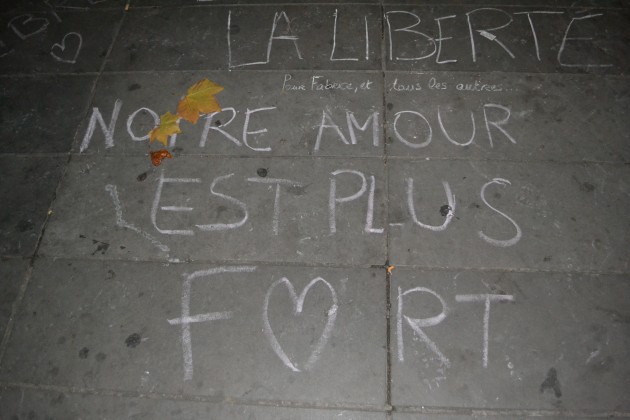 LA LIBERTÉ
Pour Fabrice, et tous les autres...
NOTRE AMOUR
EST PLUS
F♡RT